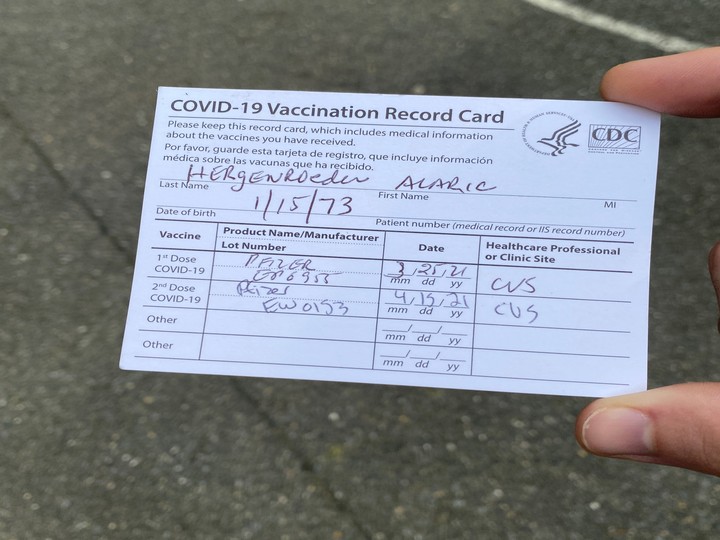 COVID-19 Vaccination Record Card
Please keep this record card, which includes medical information
about the vaccines you have received.
Por favor, guarde esta tarjeta de registro, que incluye información
médica sobre las vacunas que ha recibido.
CDC
HERGENROEDER ALARIC
Last Name First Name MI
1/15/73
Date of birth Patient number (medical record or IIS record number)
Vaccine Product Name/Manufacturer Lot Number Date Healthcare Professional or Clinic Site
1st Dose COVID-19 PFIZER 3/25/21 CVS
mm dd yy
2nd Dose COVID-19 Pfizer EW0153 4/15/21 CVS
mm dd yy
Other
mm dd yy
Other
mm dd yy